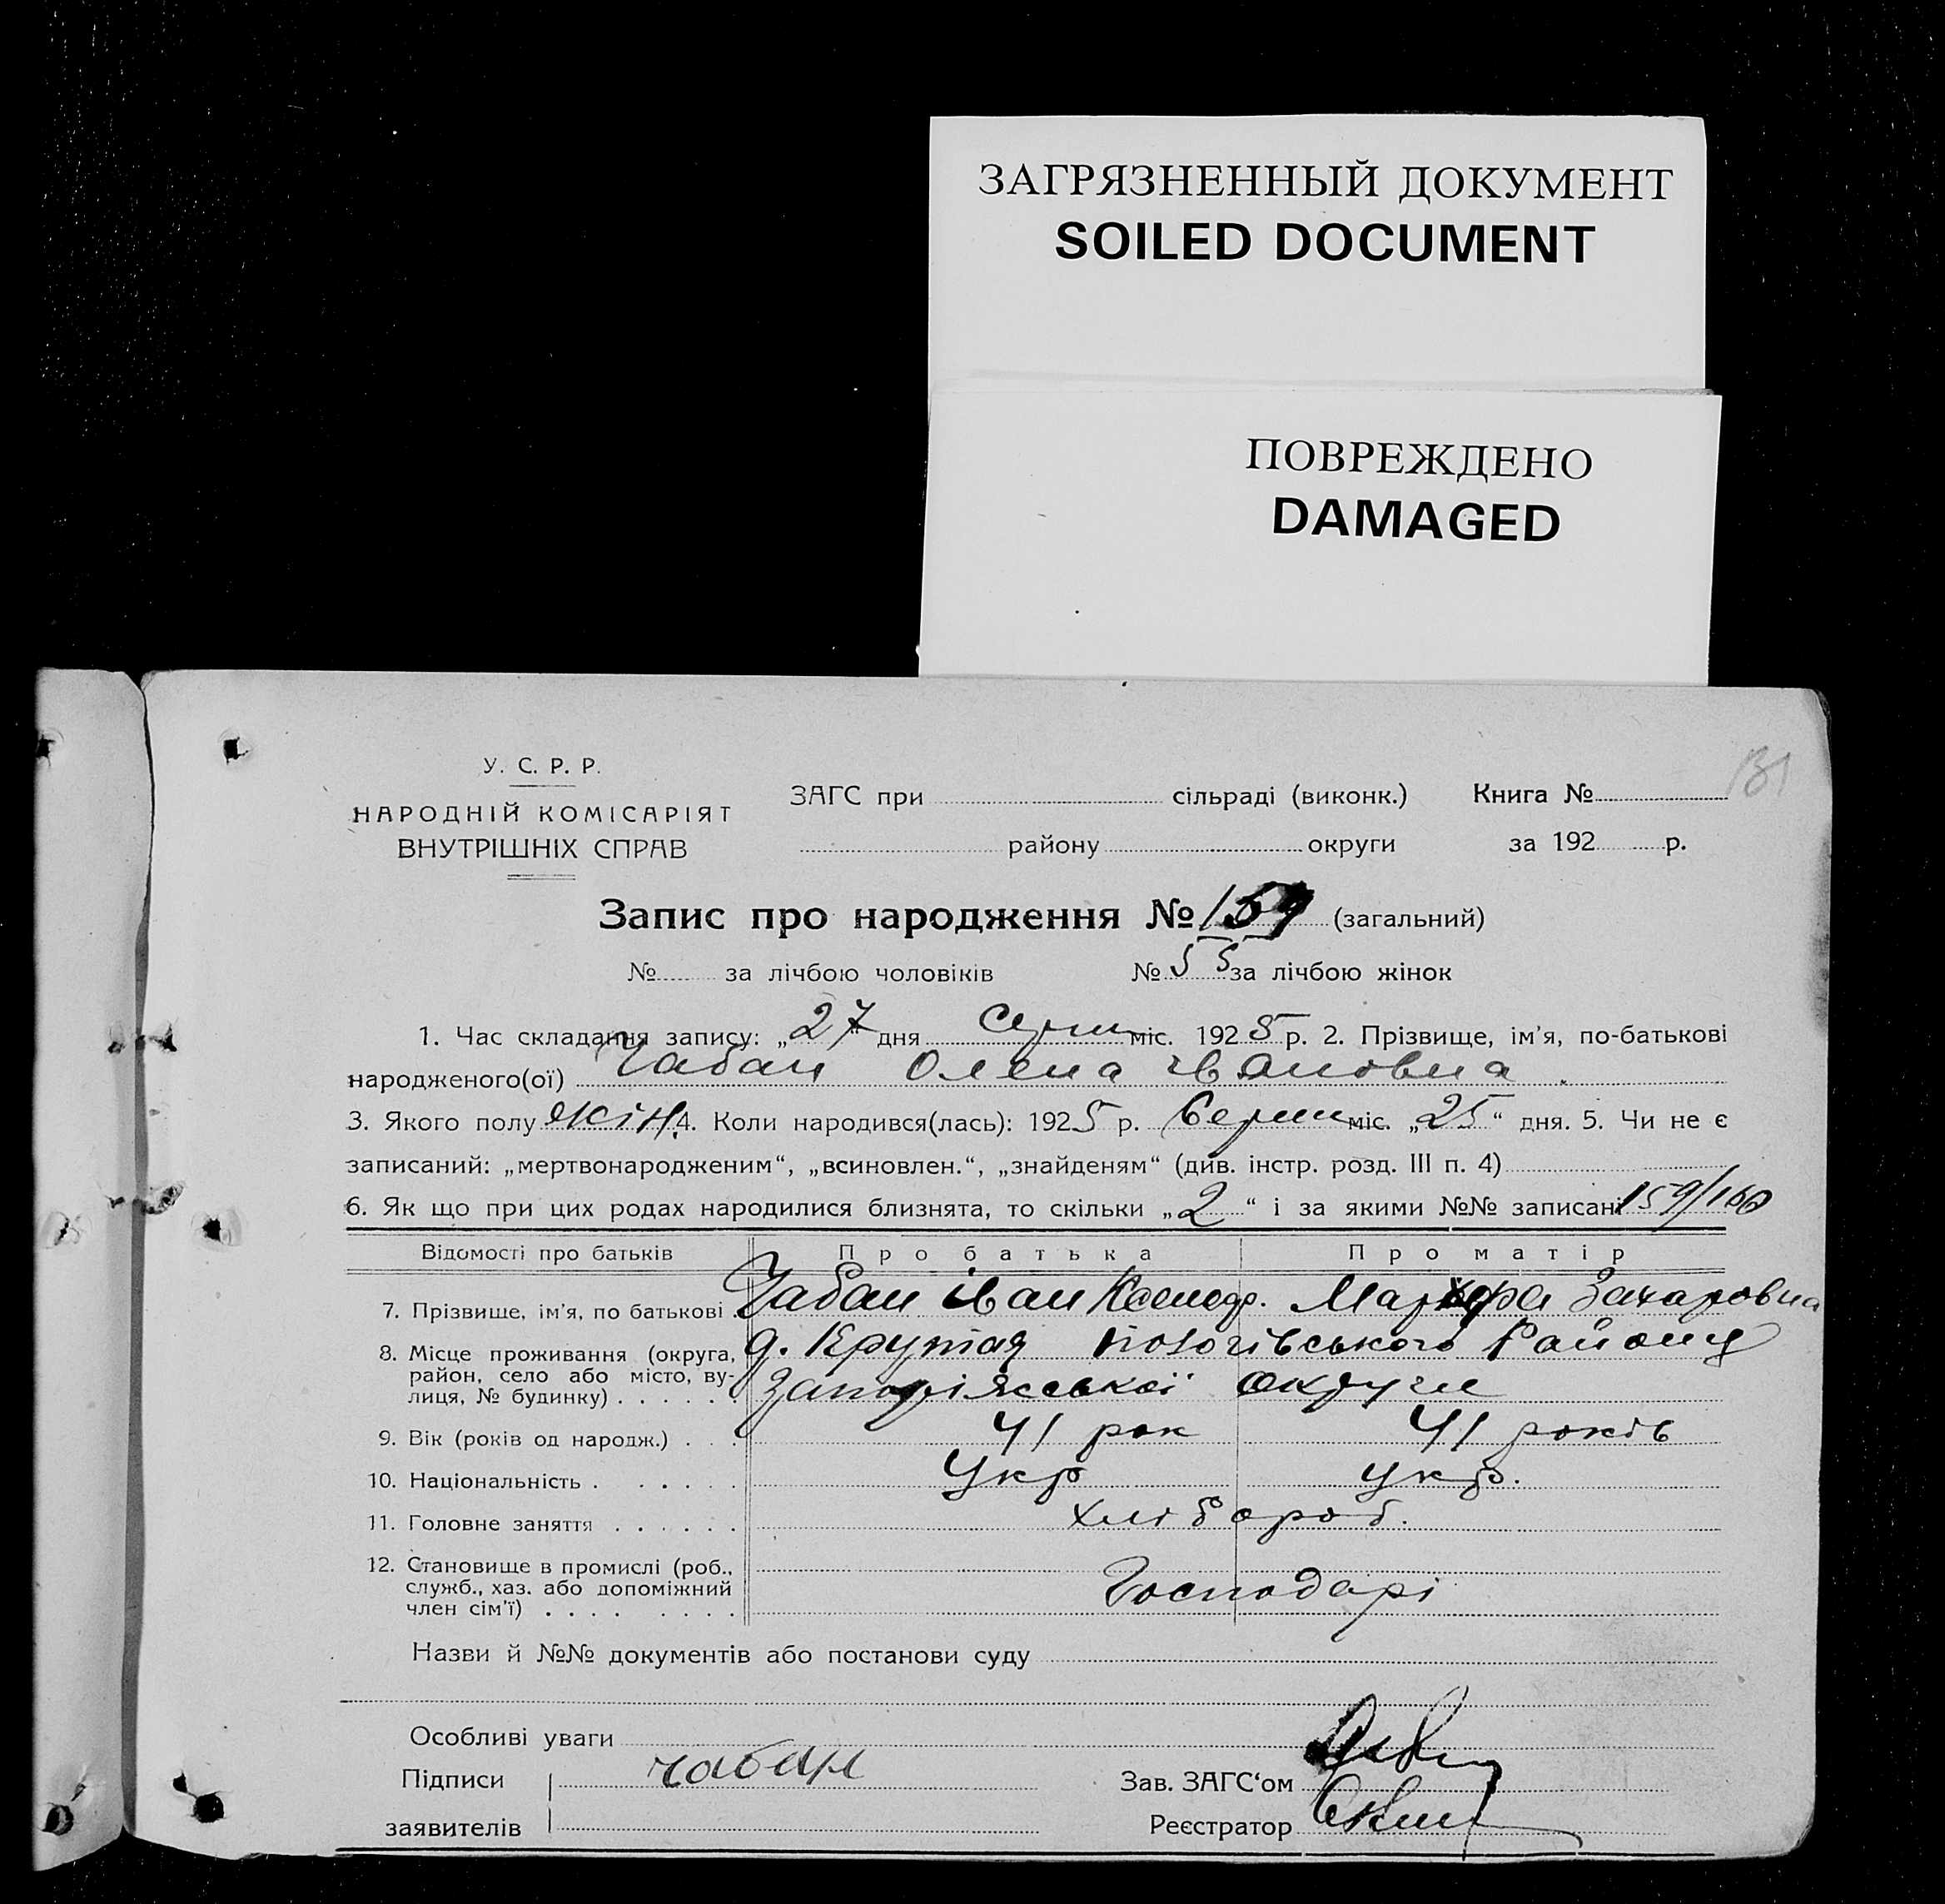 ЗАГРЯЗНЕННЫЙ ДОКУМЕНТ
SOILED DOCUMENT
ПОВРЕЖДЕНО
DAMAGED
131
У. С. Р. Р.
НАРОДНІЙ КОМІСАРІЯТ
ВНУТРІШНІХ СПРАВ
ЗАГС при сільраді (виконк.) Книга №
району округи за 192 р.
Запис про народження № 159 (загальний)
№ за лічбою чоловіків № 55 за лічбою жінок
1. Час складання запису: „27" дня Серпн міс. 1925 р. 2. Прізвище, ім'я, по-батькові
народженого(ої) Чабан Олена Івановна
3. Якого полу жін. 4. Коли народився(лась): 1925 р. Серпн міс. „25“ дня. 5. Чи не є
записаний: „мертвонародженим“, „всиновлен.“, „знайденям“ (див. інстр. розд. III п. 4)
6. Як що при цих родах народилися близнята, то скільки „2“ і за якими №№ записані 159/160
Відомості про батьків Про батька Про матір
7. Прізвище, ім'я, по батькові Чабан Іван Захаровна
8. Місце проживання (округа, район, село або місто, вулиця, № будинку) д. Крутая Пологівського Району
Запоріжської Округи
9. Вік (років од народж.) 41 рок 41 років
10. Національність Укр Укр.
11. Головне заняття хлібороб.
12. Становище в промислі (роб., служб., хаз. або допоміжний член сім'ї) Господарі
Назви й №№ документів або постанови суду
Особливі уваги
Підписи заявителів чабан
Зав. ЗАГС‘ом
Реєстратор